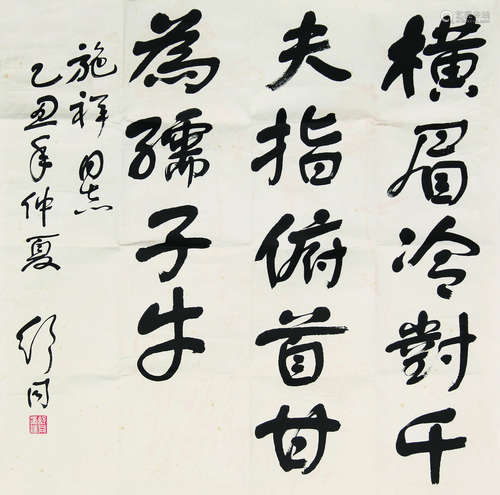 橫眉冷對千
夫指俯首甘
為孺子牛
施祥同志
乙丑年仲夏
舒同